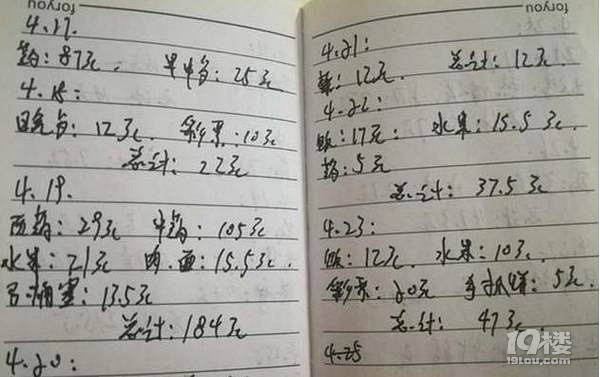 foryou
4.17.
药：87元. 25元
4.18：
12元. 彩票：10元
总计：22元
4.19.
西药：29元 中药：105元
水果：21元 肉.面：15.5元.
13.5元
总计：184元
4.20：
foryou
4.21：
12元. 总计：12元.
4.22：
饭：17元. 水果：15.5元.
药：5元
总计：37.5元
4.23：
饭：12元. 水果：10元.
彩票：20元 手抓饼：5元.
总计：47元
4.25
19楼
19lou.com